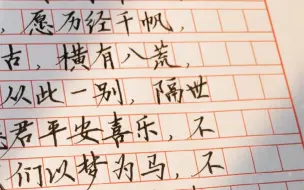 ，愿历经千帆，
古，横有八荒，
从此一别，隔世
君平安喜乐，不
们以梦为马，不